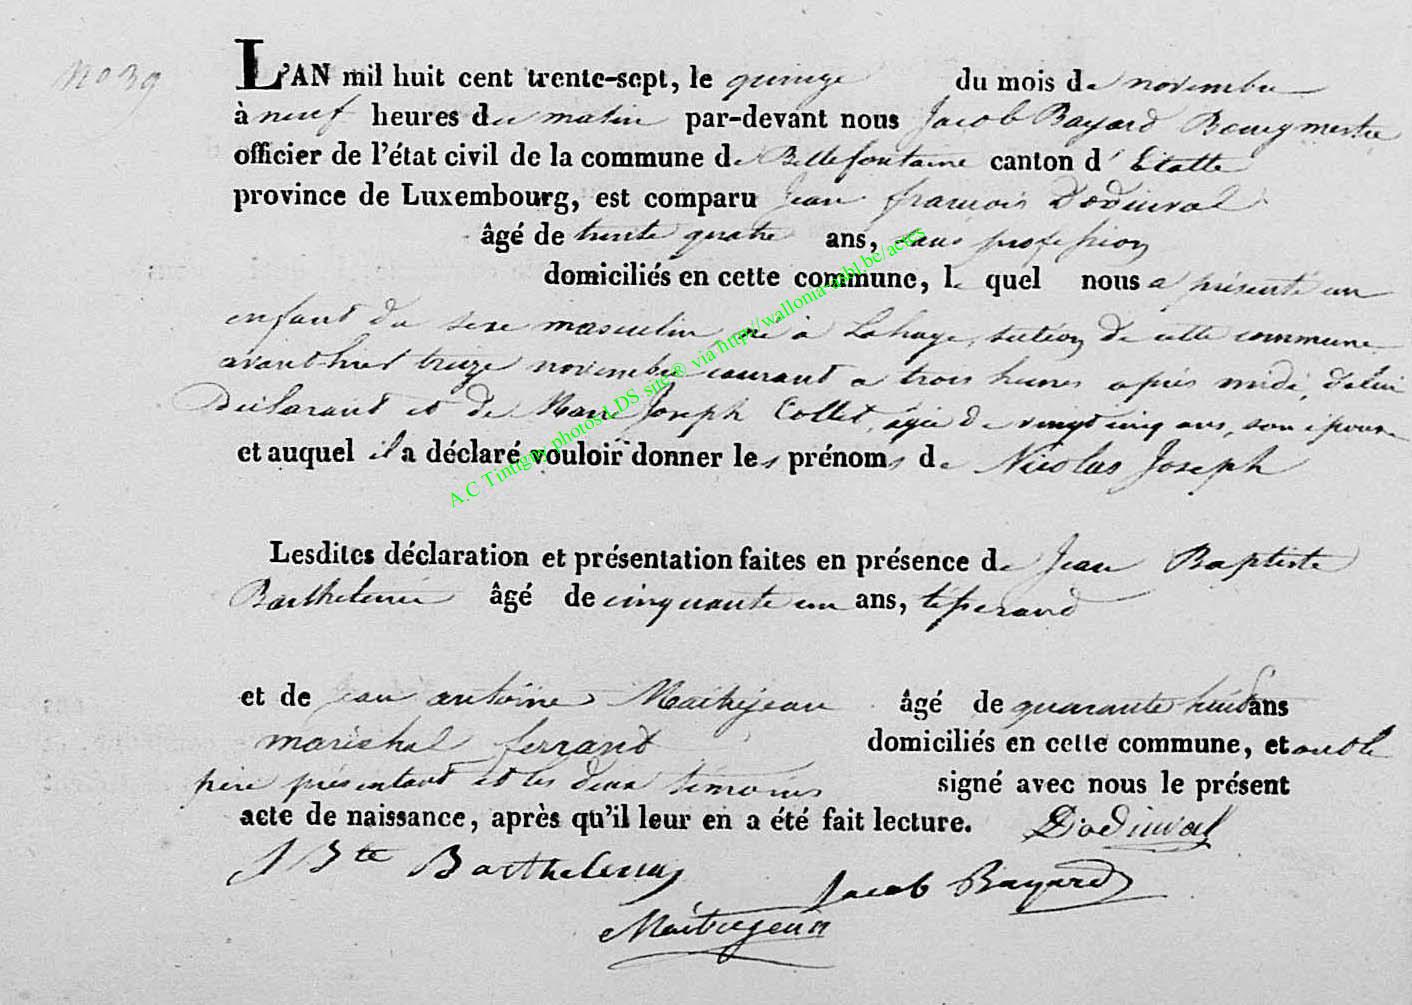 N° 39
L'AN mil huit cent trente-sept, le quinze du mois de novembre
à neuf heures du matin par-devant nous Jacob Bayard Bourgmestre
officier de l'état civil de la commune de Bellefontaine canton d'Etalle
province de Luxembourg, est comparu Jean françois Dodinval
âgé de trente quatre ans, sans profession
domiciliés en cette commune, le quel nous a présenté un
enfant du sexe masculin, né à Lahage, section de cette commune
avant hier treize novembre courant a trois heures après midi, de lui
Déclarant et de Marie Joseph Collet, agée de vingt cinq ans, son épouse
et auquel il a déclaré vouloir donner les prénoms de Nicolas Joseph
Lesdites déclaration et présentation faites en présence de Jean Baptiste
Barthelemi âgé de cinquante un ans, tisserand
et de Jean antoine Maitrejean âgé de quarante huit ans
maréchal ferrant domiciliés en cette commune, et ont le
père présentant et les deux témoins signé avec nous le présent
acte de naissance, après qu'il leur en a été fait lecture. Dodinval
J Bte Barthelemy
Jacob Bayard
Maitrejean
A.C Tintigny photos LDS site® via http://wallonia-asbl.be/actes